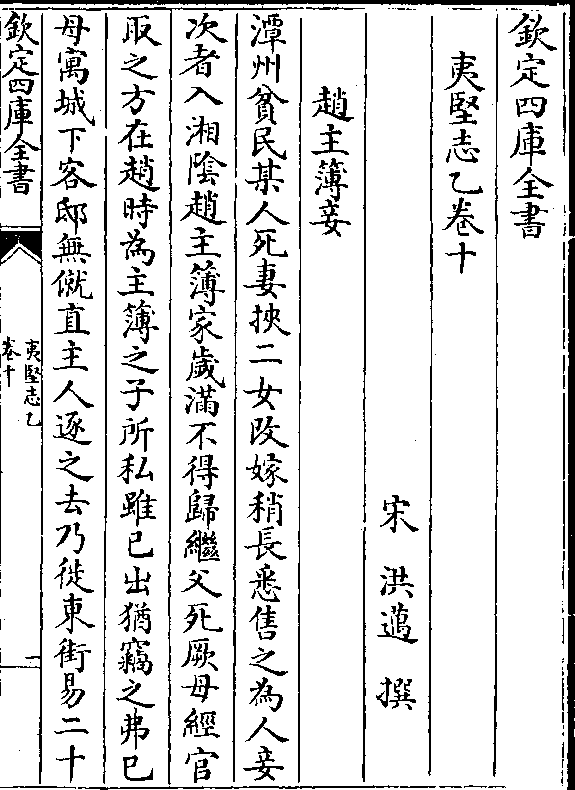 欽定四庫全書
夷堅志乙卷十
宋 洪邁 撰
趙主簿妾
潭州貧民某人死妻挾二女改嫁稍長悉售之為人妾
次者入湘陰趙主簿家歲滿不得歸繼父死厥母經官
取之方在趙時為主簿之子所私雖已出猶竊之弗已
母寓城下客邸無僦直主人逐之去乃徙東街易二十
欽定四庫全書
夷堅志乙
卷十
一